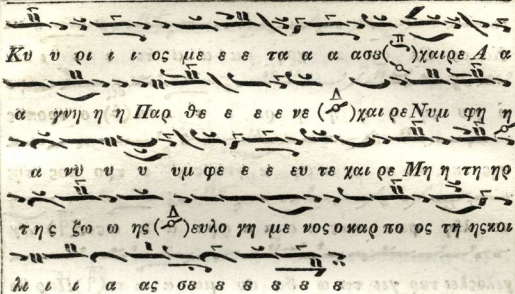 Κυ υ ρι ι ι ος με ε ε τα α α ασε χαιρε Α α
α γνη η η Παρ θε ε ε ε νε χαι ρε Νυμ φη η
α νυ υ υ υμ φε ε ε ευ τε χαι ρε Μη η τη ηρ
της ζω ω ης ευλο γη με νος ο καρ πο ος τη ης κοι
λι ι ι α ας σε ε ε ε ε ε